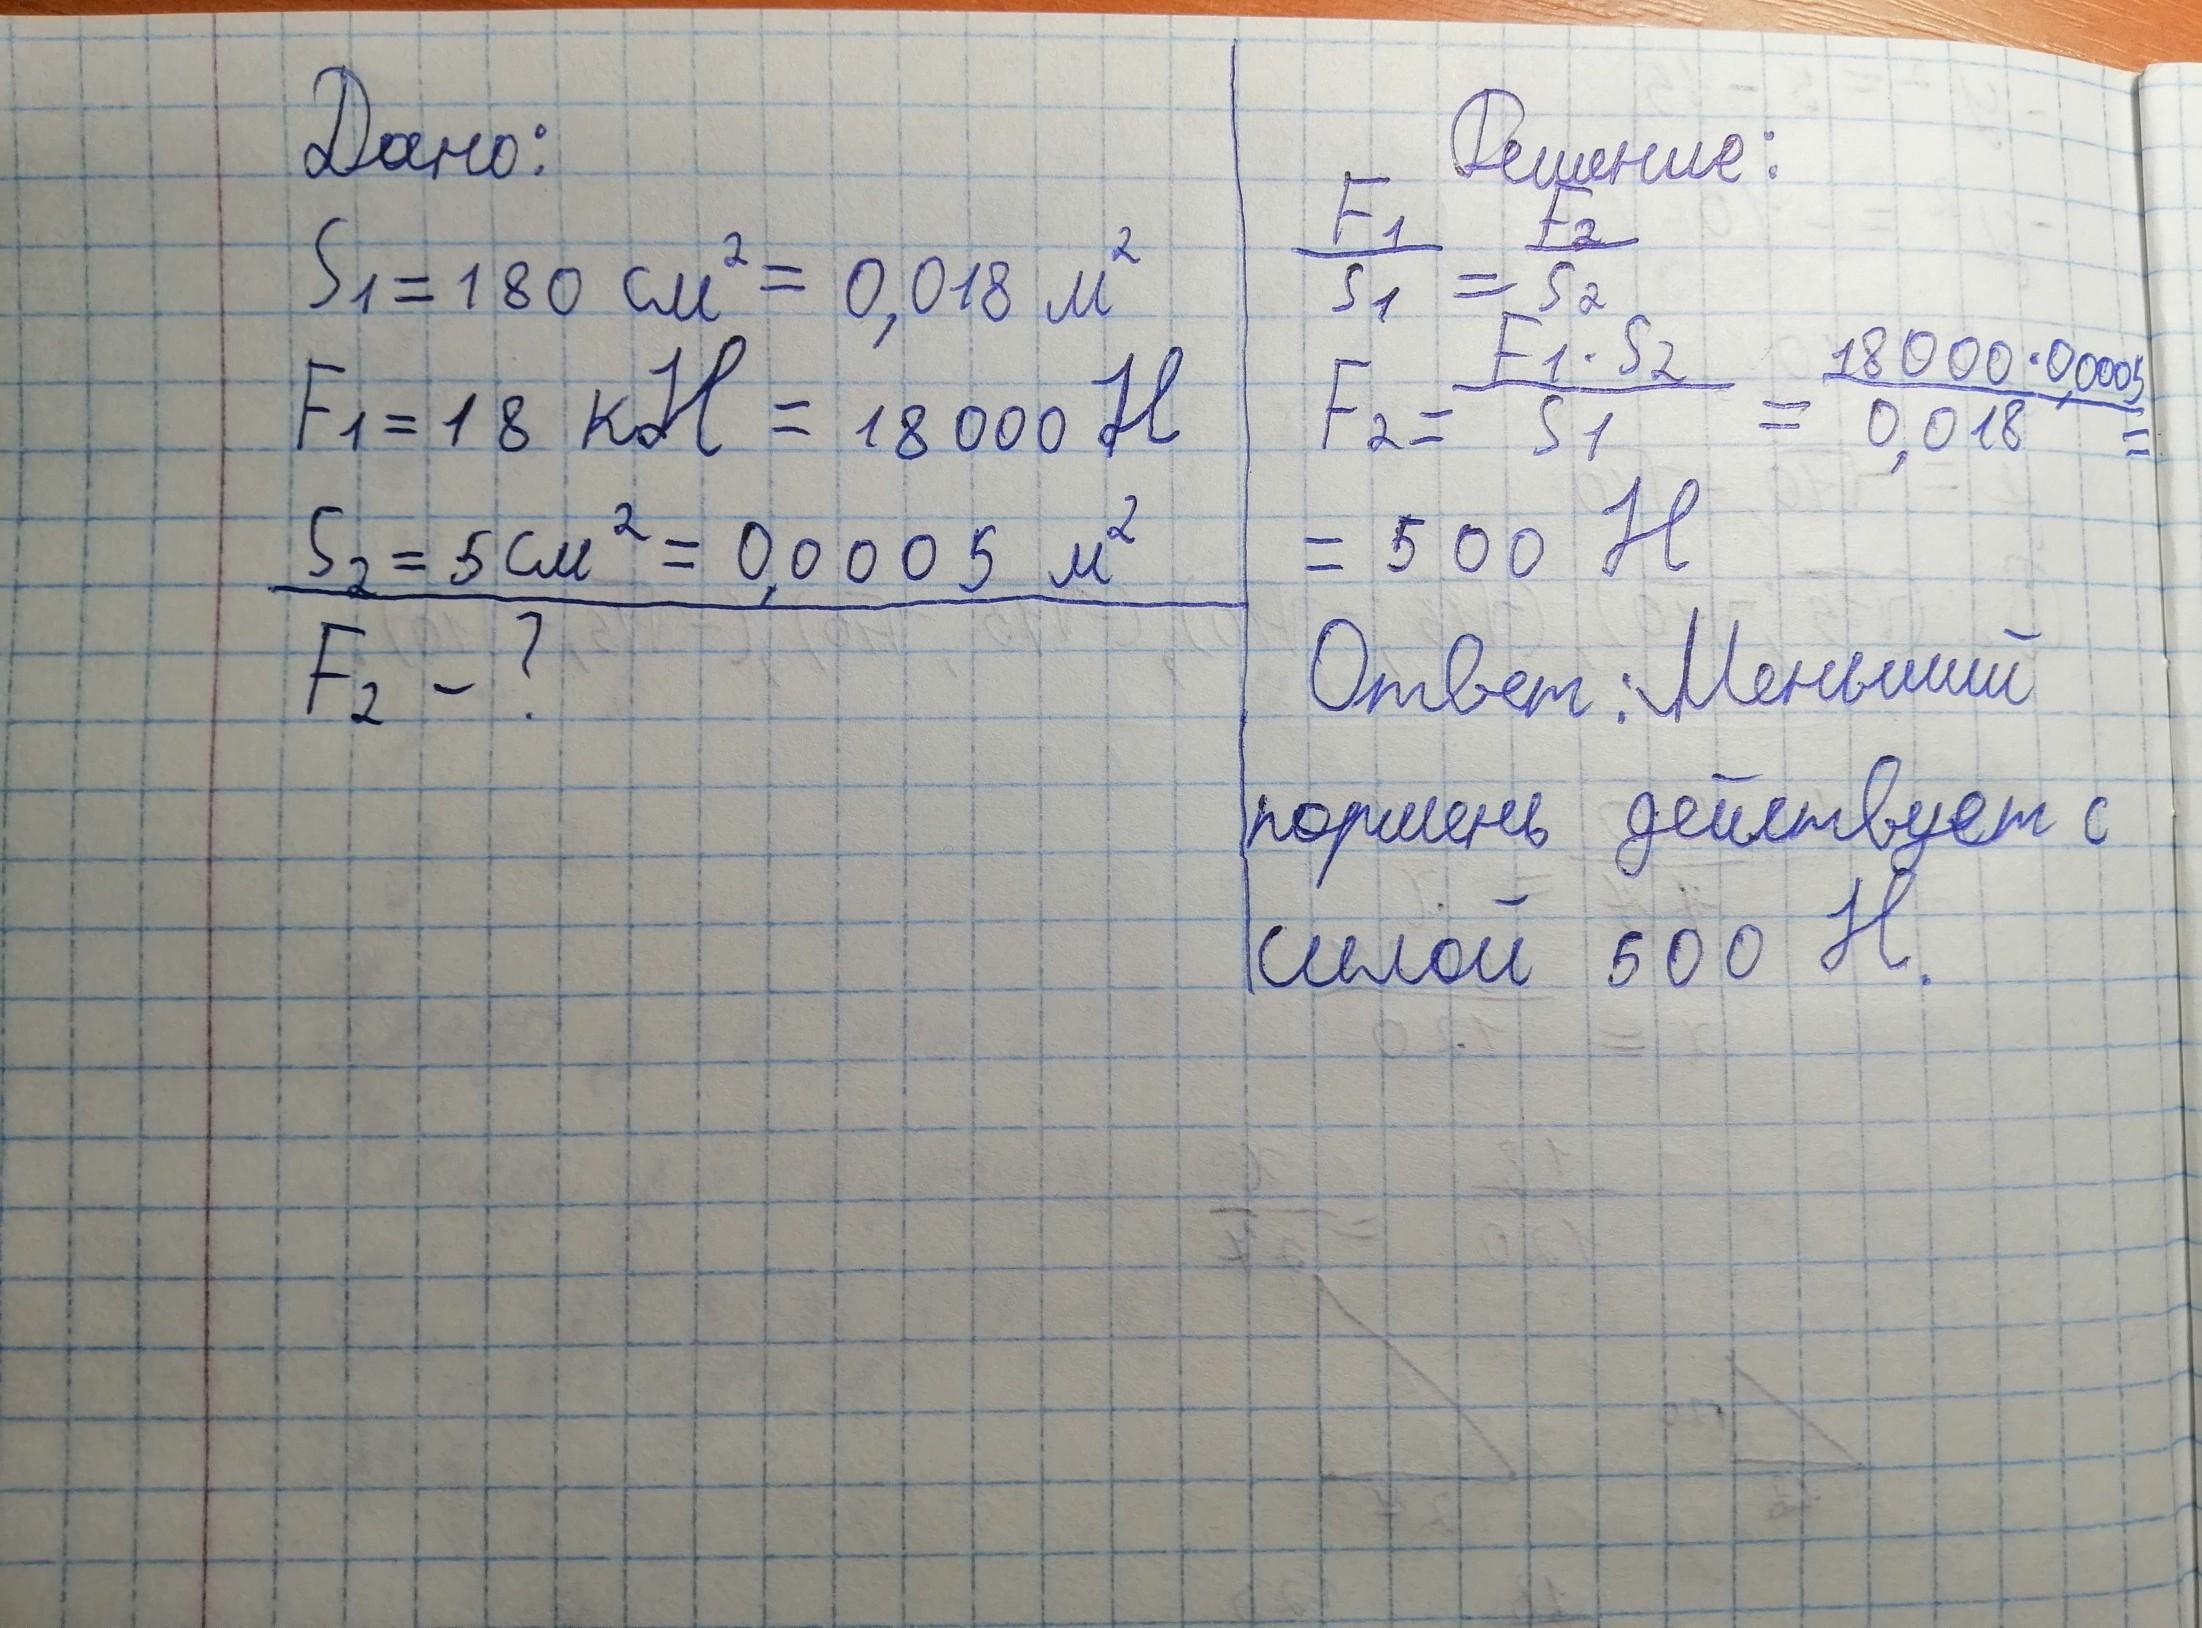 Дано:
S1 = 180 см² = 0,018 м²
F1 = 18 кН = 18000 Н
S2 = 5 см² = 0,0005 м²
F2 - ?
Решение:
F1/S1 = F2/S2
F2 = F1·S2/S1 = 18000·0,0005/0,018 =
= 500 Н
Ответ: Меньший
поршень действует с
силой 500 Н.